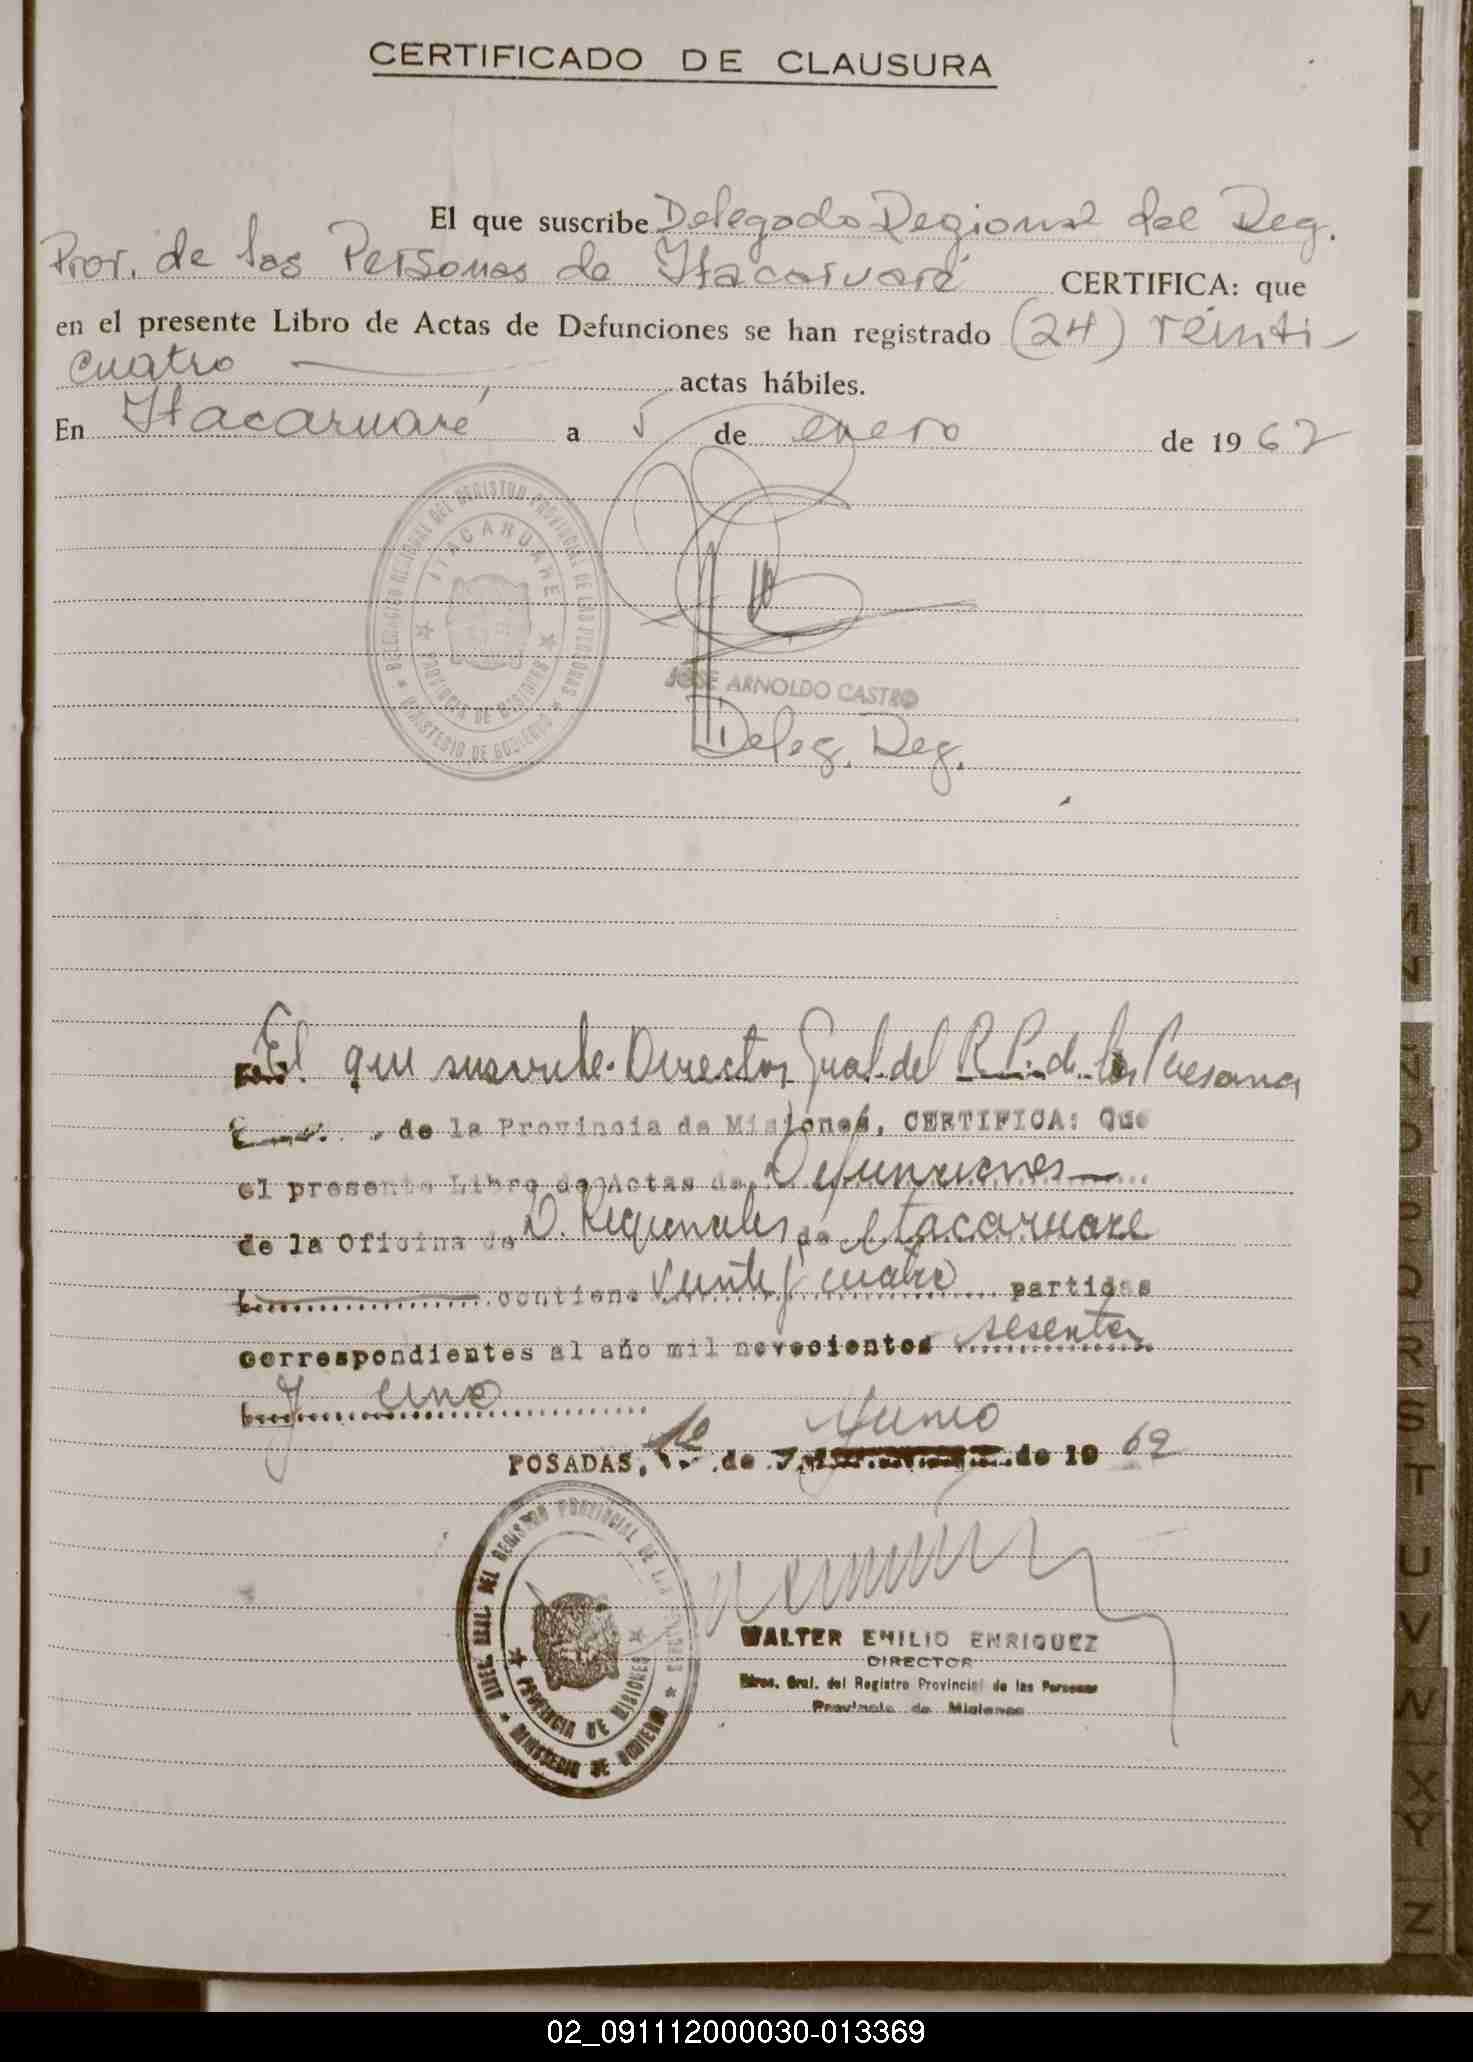 CERTIFICADO DE CLAUSURA
El que suscribe Delegado Regional del Reg.
Prov. de las Personas de Itacaruaré CERTIFICA: que
en el presente Libro de Actas de Defunciones se han registrado (24) veinti
cuatro actas hábiles.
En Itacaruaré, a 5 de enero de 1962
DELEGACION REGIONAL DEL REGISTRO PROVINCIAL DE LAS PERSONAS
ITACARUARE
PROVINCIA DE MISIONES
MINISTERIO DE GOBIERNO
JOSE ARNOLDO CASTRO
Deleg. Reg.
El que suscribe Director Gral. del R. P. de las Personas
de la Provincia de Misiones, CERTIFICA: Que
el presente Libro de Actas de Defunciones
de la Oficina de D. Regionales de Itacaruare
contiene Veinte y cuatro partidas
correspondientes al año mil novecientos sesenta
y uno
POSADAS, de Junio de 1962
DIREC. GRAL. DEL REGISTRO PROVINCIAL DE LAS PERSONAS
PROVINCIA DE MISIONES
MINISTERIO DE GOBIERNO
WALTER EMILIO ENRIQUEZ
DIRECTOR
Direc. Gral. del Registro Provincial de las Personas
Provincia de Misiones
N
O
P
Q
R
S
T
U
V
W
X
Y
Z
02_091112000030-013369